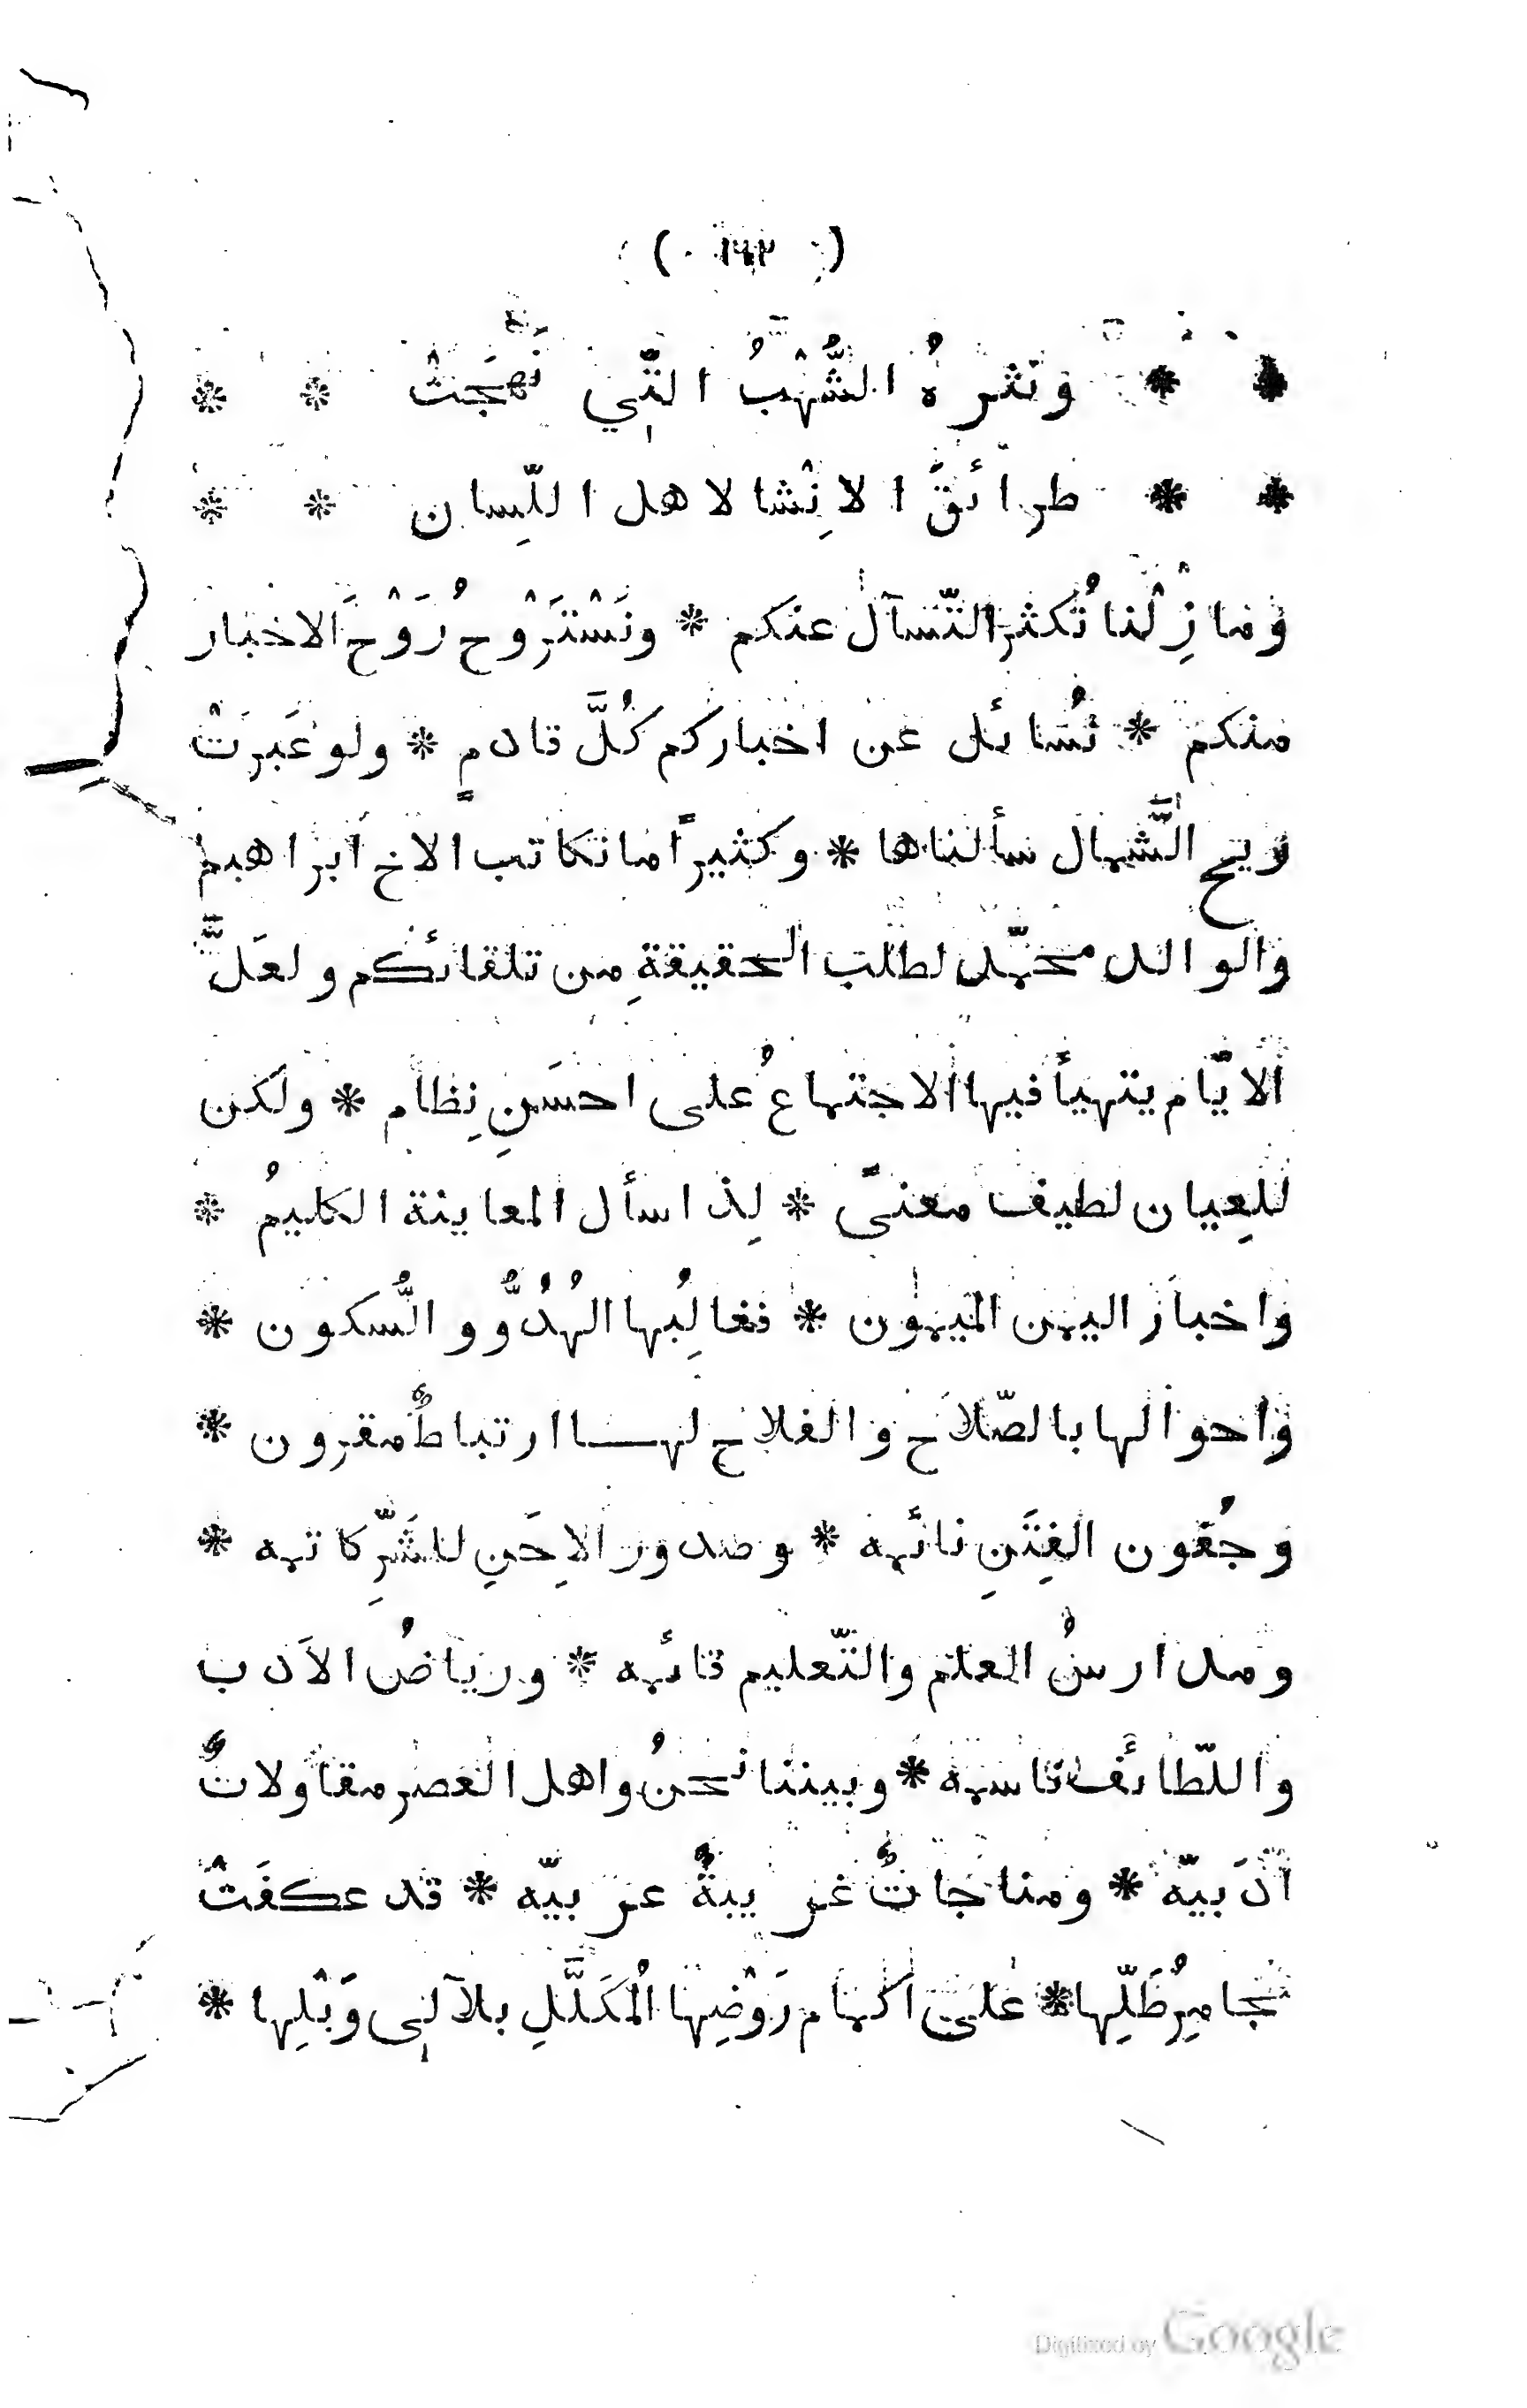 ( ١٤٣ )
* * ونثرهُ الشُّهْبُ التّي نَهَجَتْ * *
* * طرائقَ الاِنْشا لاهل اللِّسان * *
وما زِلْنا نُكثر التّسآل عنكم * ونَسْتَرْوِح رَوْحَ الاخبار
منكم * نُسَائل عن اخباركم كُلَّ قادمٍ * ولو عَبرَتْ
ريح الشَّمال سألناها * وكثيراً ما نكاتب الاخ ابراهيم
والوالد محمّد لطلب الحقيقةِ من تلقائكم ولعَلَّ
الايّام يتهيأ فيها الاجتماعُ على احسَنِ نِظام * ولكن
للعِيان لطيف معنىً * لِذا سأل المعاينة الكليمُ *
واخبار اليمن الميمون * فغالِبُها الهُدُوُّ والسُّكون *
واحوالها بالصّلاح والفلاح لهــا ارتباطٌ مقرون *
وجُفون الفِتَنِ نائمه * وصدور الاِحَنِ للشَّرِّ كاتمه *
ومدارسُ العلم والتّعليم قائمه * ورياضُ الاَدب
واللّطائف ناسمه * وبيننا نحنُ واهل العصر مقاولاتٌ
اَدَبيّه * ومناجاتٌ غريبةٌ عربيّه * قد عكفَتْ
مجامِرُ ظَلِّها * على اكمام رَوْضِها المُكَلَّلِ بلآلي وَبْلِها *
Digitized by Google